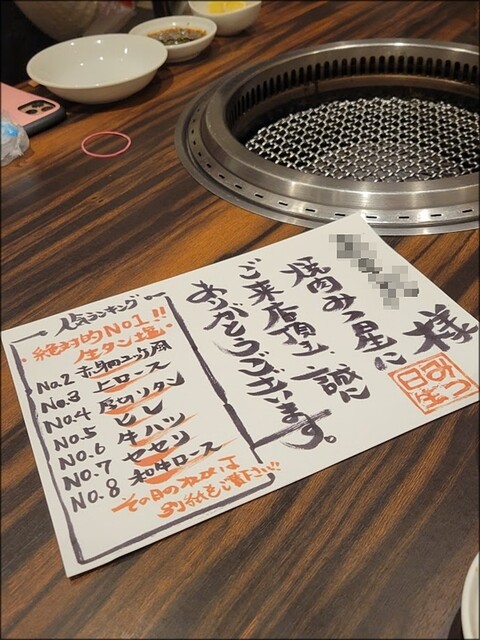 様
焼肉みつ星に
ご来店頂き、誠に
ありがとうございます。
みつ
日生
人気ランキング
絶対的No.1!!
生タン塩
No.2 赤身ユッケ風
No.3 上ロース
No.4 厚切タン
No.5 ヒレ
No.6 牛ハツ
No.7 セセリ
No.8 和牛ロース
その日のオススメは
別紙をご覧下さい!!